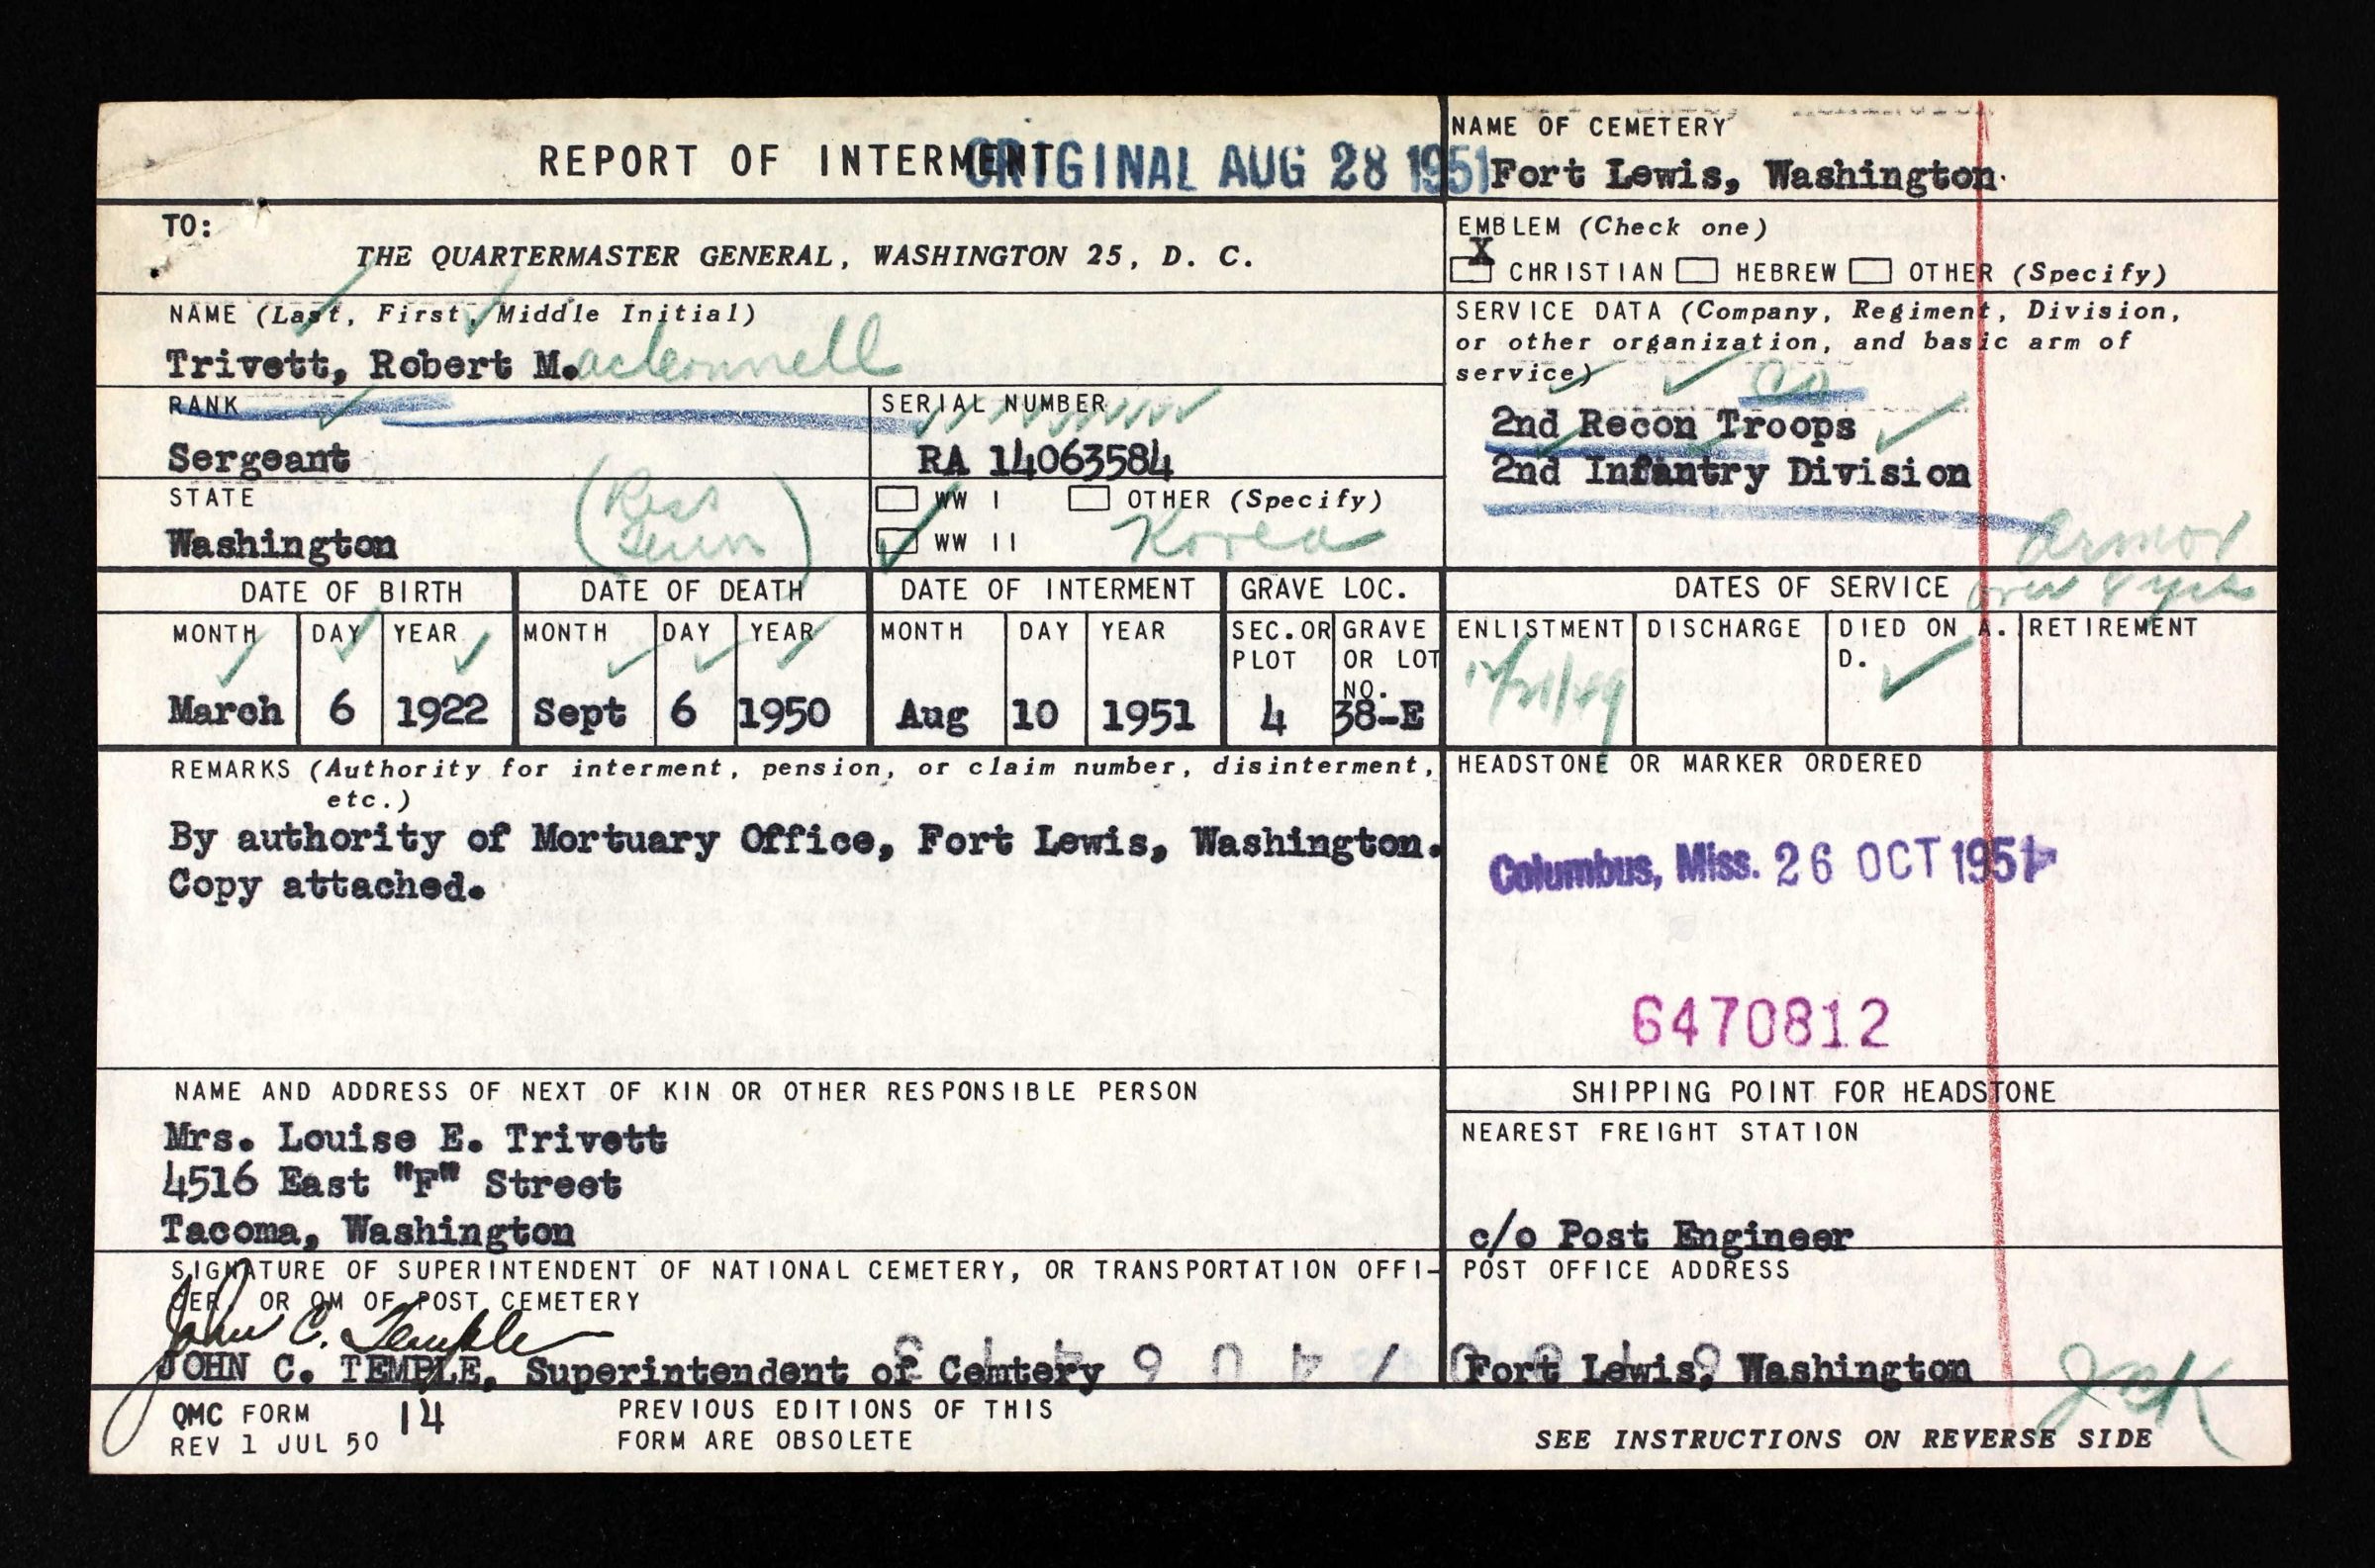 REPORT OF INTERMENT
ORIGINAL AUG 28 1951
TO:
THE QUARTERMASTER GENERAL, WASHINGTON 25, D. C.
NAME (Last, First, Middle Initial)
Trivett, Robert M.
RANK
Sergeant
SERIAL NUMBER
RA 14063584
STATE
Washington
WW I
OTHER (Specify)
WW II
Korea
DATE OF BIRTH
MONTH DAY YEAR
March 6 1922
DATE OF DEATH
MONTH DAY YEAR
Sept 6 1950
DATE OF INTERMENT
MONTH DAY YEAR
Aug 10 1951
GRAVE LOC.
SEC. OR PLOT
4
GRAVE OR LOT NO.
38-E
REMARKS (Authority for interment, pension, or claim number, disinterment,
etc.)
By authority of Mortuary Office, Fort Lewis, Washington.
Copy attached.
NAME AND ADDRESS OF NEXT OF KIN OR OTHER RESPONSIBLE PERSON
Mrs. Louise E. Trivett
4516 East "F" Street
Tacoma, Washington
SIGNATURE OF SUPERINTENDENT OF NATIONAL CEMETERY, OR TRANSPORTATION OFFI-
CER, OR QM OF POST CEMETERY
John C. Temple
JOHN C. TEMPLE, Superintendent of Cemtery
QMC FORM 14
REV 1 JUL 50
PREVIOUS EDITIONS OF THIS
FORM ARE OBSOLETE
NAME OF CEMETERY
Fort Lewis, Washington
EMBLEM (Check one)
X
CHRISTIAN HEBREW OTHER (Specify)
SERVICE DATA (Company, Regiment, Division,
or other organization, and basic arm of
service)
Co
2nd Recon Troops
2nd Infantry Division
Armor
DATES OF SERVICE
ENLISTMENT
DISCHARGE
DIED ON A.
D.
RETIREMENT
HEADSTONE OR MARKER ORDERED
Columbus, Miss. 26 OCT 1951
6470812
SHIPPING POINT FOR HEADSTONE
NEAREST FREIGHT STATION
c/o Post Engineer
POST OFFICE ADDRESS
Fort Lewis, Washington
SEE INSTRUCTIONS ON REVERSE SIDE